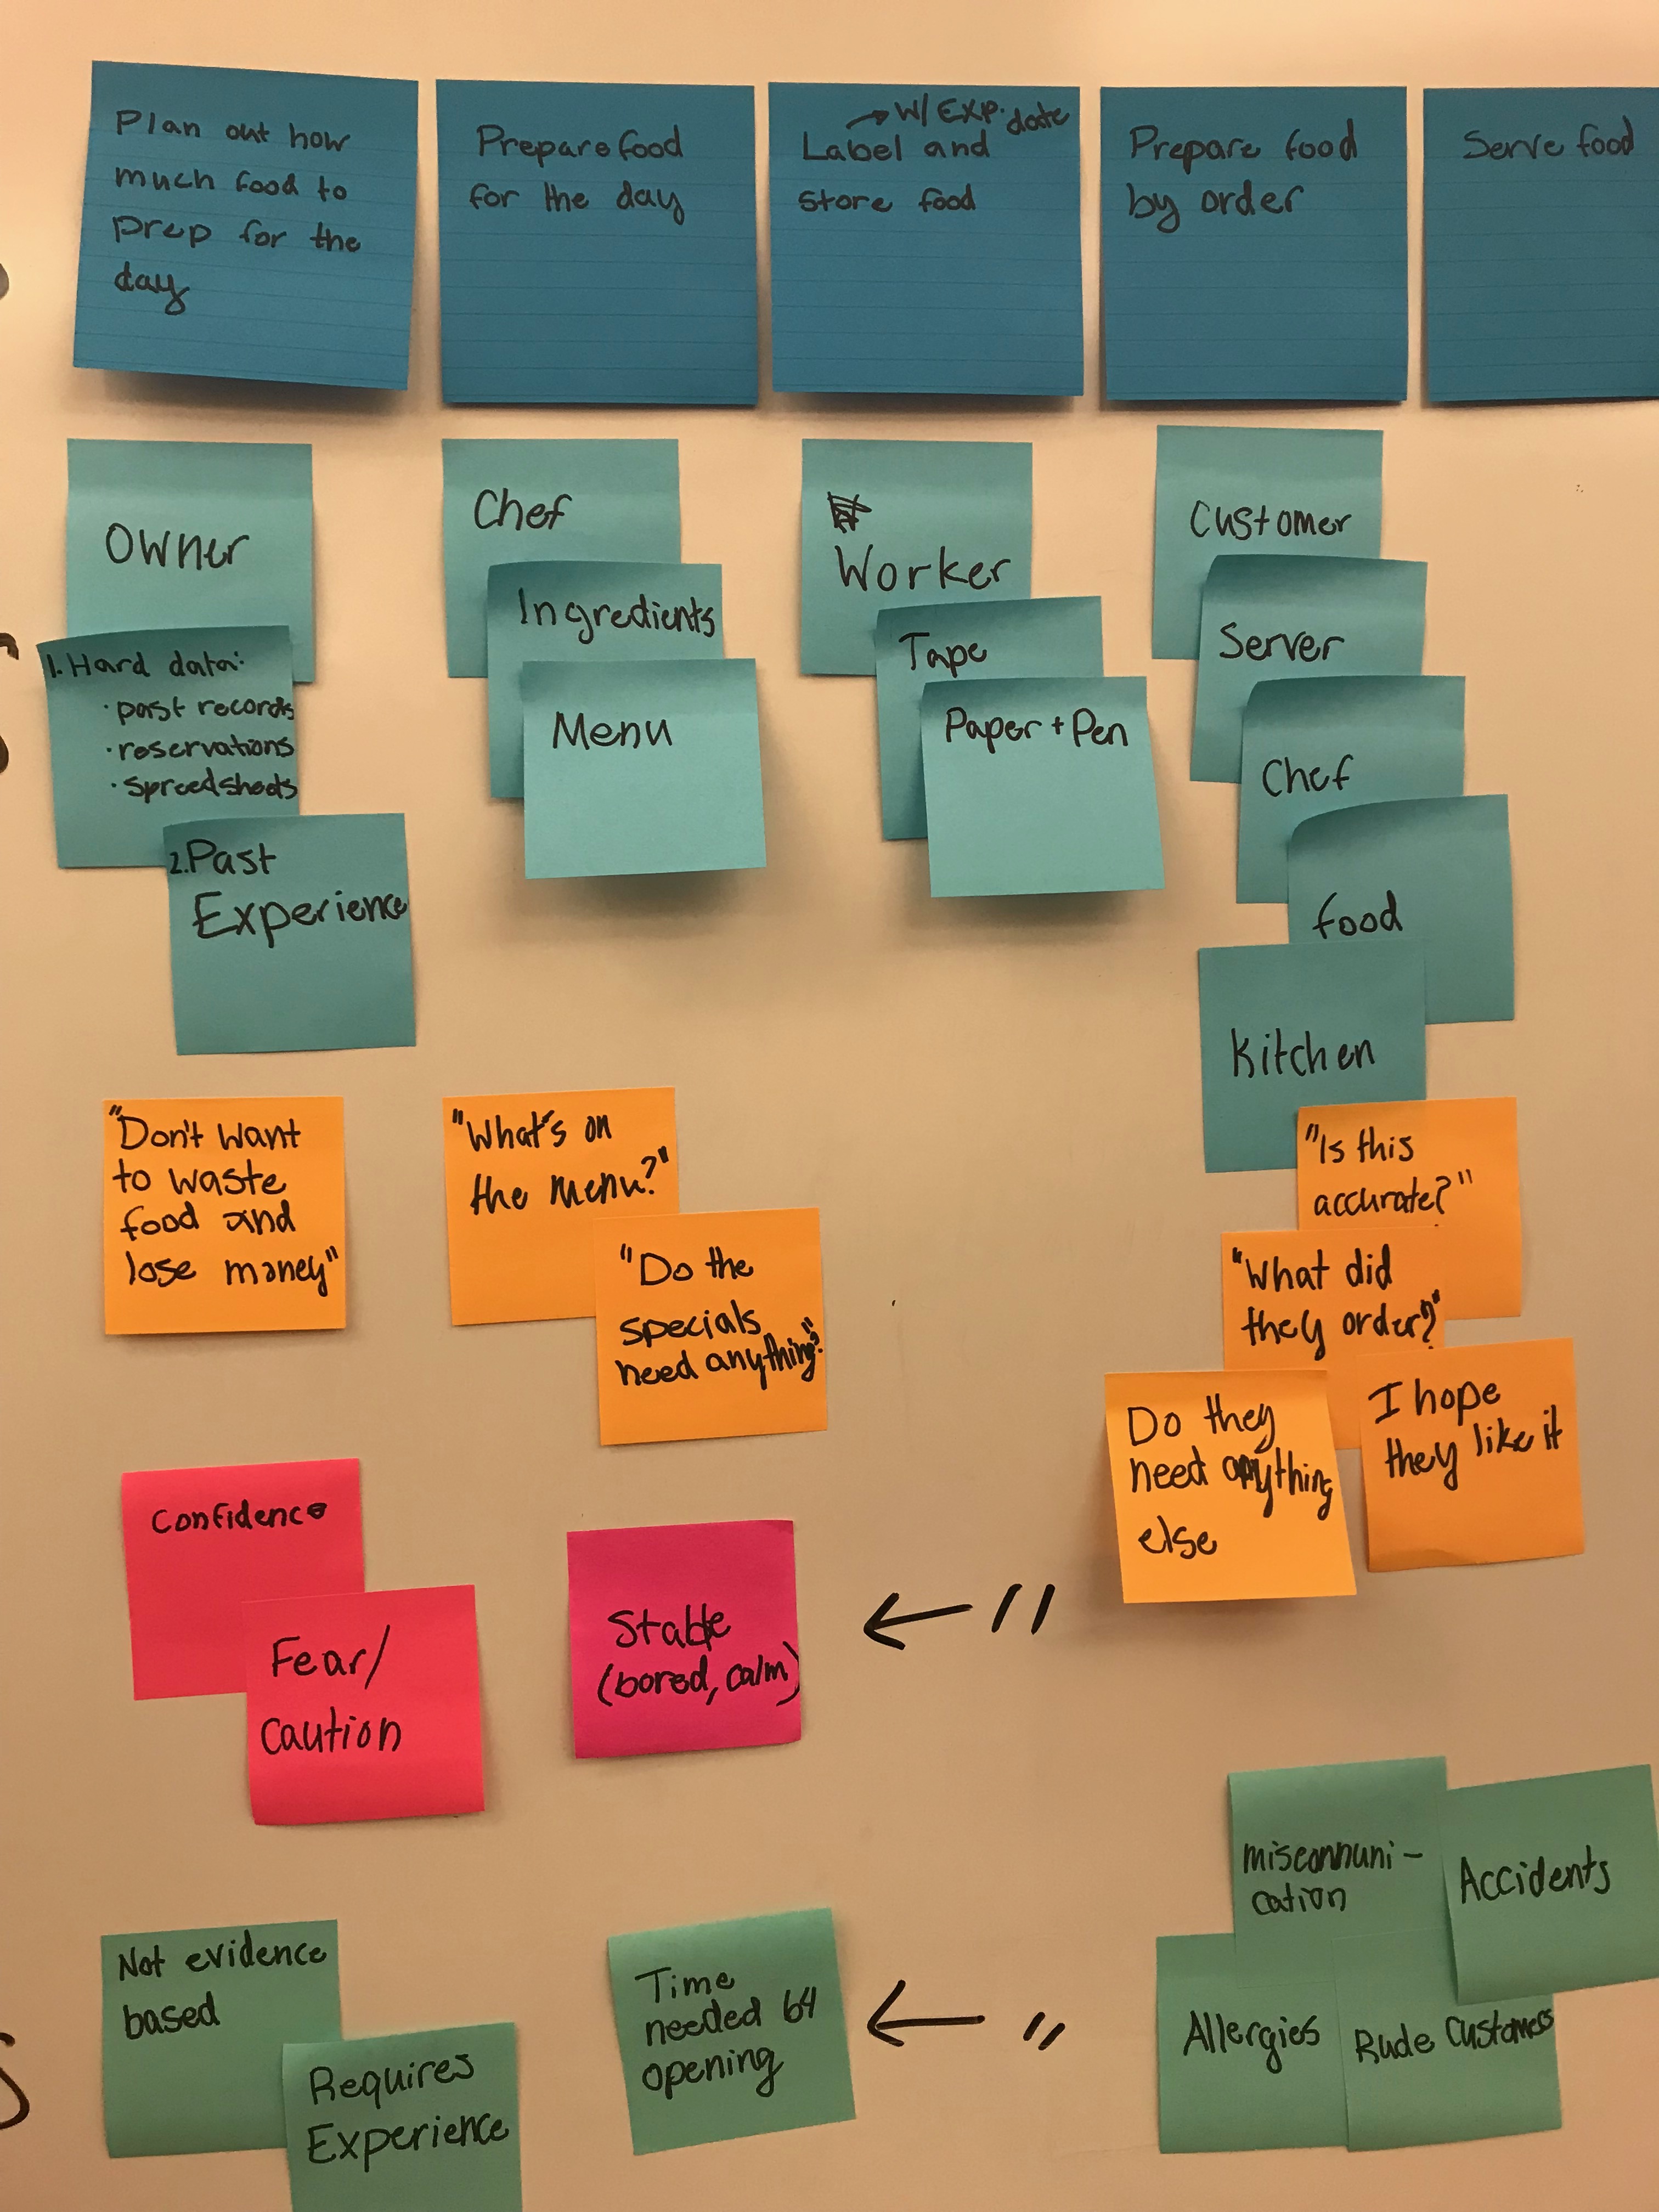 Plan out how
much food to
prep for the
day
Prepare food
for the day
→ W/ EXP. date
Label and
store food
Prepare food
by order
Serve food
Owner
1. Hard data:
· past records
· reservations
· spreedsheets
2. Past
Experience
Chef
Ingredients
Menu
Worker
Tape
Paper + Pen
Customer
Server
Chef
food
Kitchen
"Don't want
to waste
food and
lose money"
"What's on
the menu?"
"Do the
specials
need anything?"
"Is this
accurate?"
"What did
they order?"
Do they
need anything
else
I hope
they like it
Confidence
Fear/
Caution
Stable
(bored, calm)
← "
Not evidence
based
Requires
Experience
Time
needed b4
opening
← "
miscommuni-
cation
Accidents
Allergies
Rude Customers